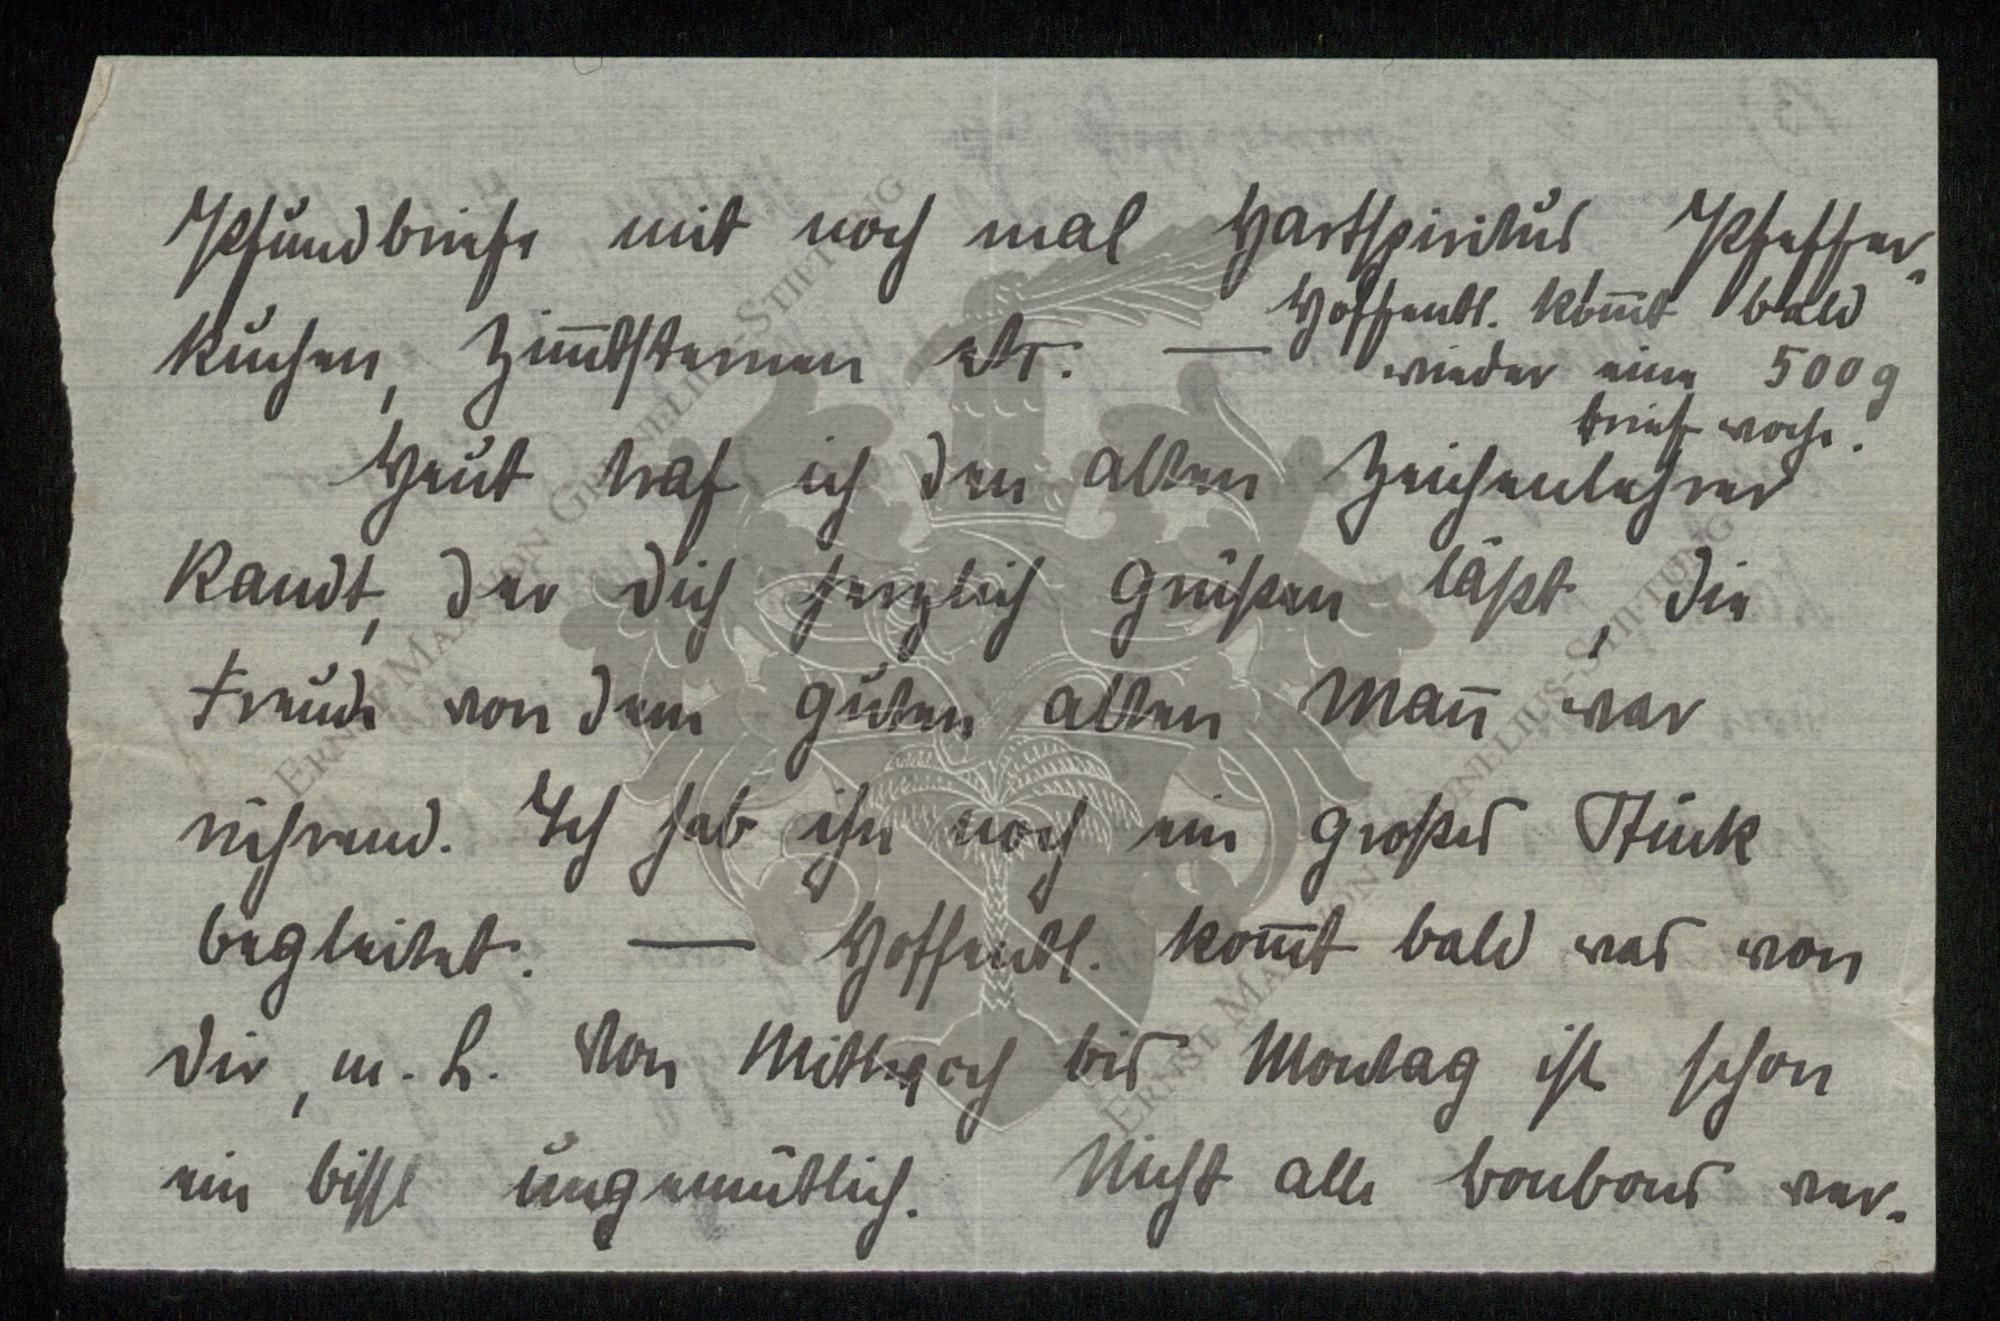 Pfundbriefe mit noch mal Hartspiritus Pfeffer-
kuchen, Zim̅tsternen etc. —
Hoffentl. kom̅t bald
wieder eine 500 g
brief woche.
Heut traf ich den alten Zeichenlehrer
Kandt, der Dich herzlich grüßen läßt, die
Freude von dem guten alten Man̅ war
rührend. Ich hab ihn noch ein großes Stück
begleitet. — Hoffentl. kom̅t bald was von
Dir, m. L. Von Mittwoch bis Montag ist schon
ein bissl ungemütlich. Nicht alle bonbons ver-
ERNST MAX VON GRUNELIUS-STIFTUNG
ERNST MAX VON GRUNELIUS-STIFTUNG